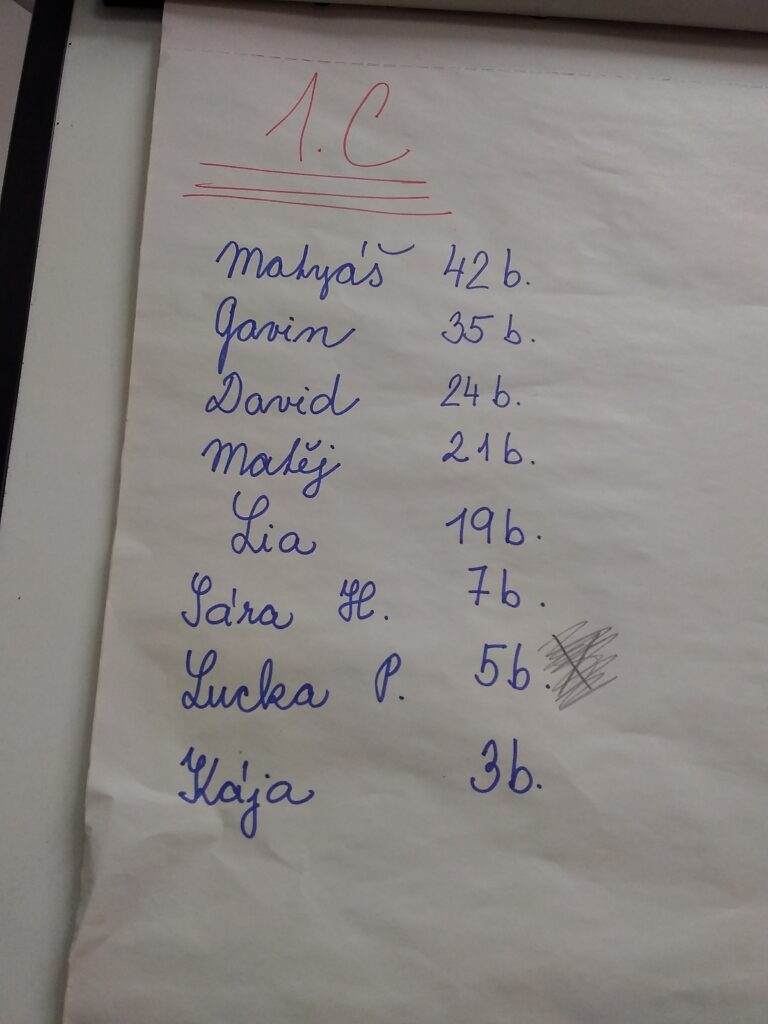 1. C
Matyáš 42 b.
Gavin 35 b.
David 24 b.
Matěj 21 b.
Lia 19 b.
Sára H. 7 b.
Lucka P. 5 b.
Kája 3 b.